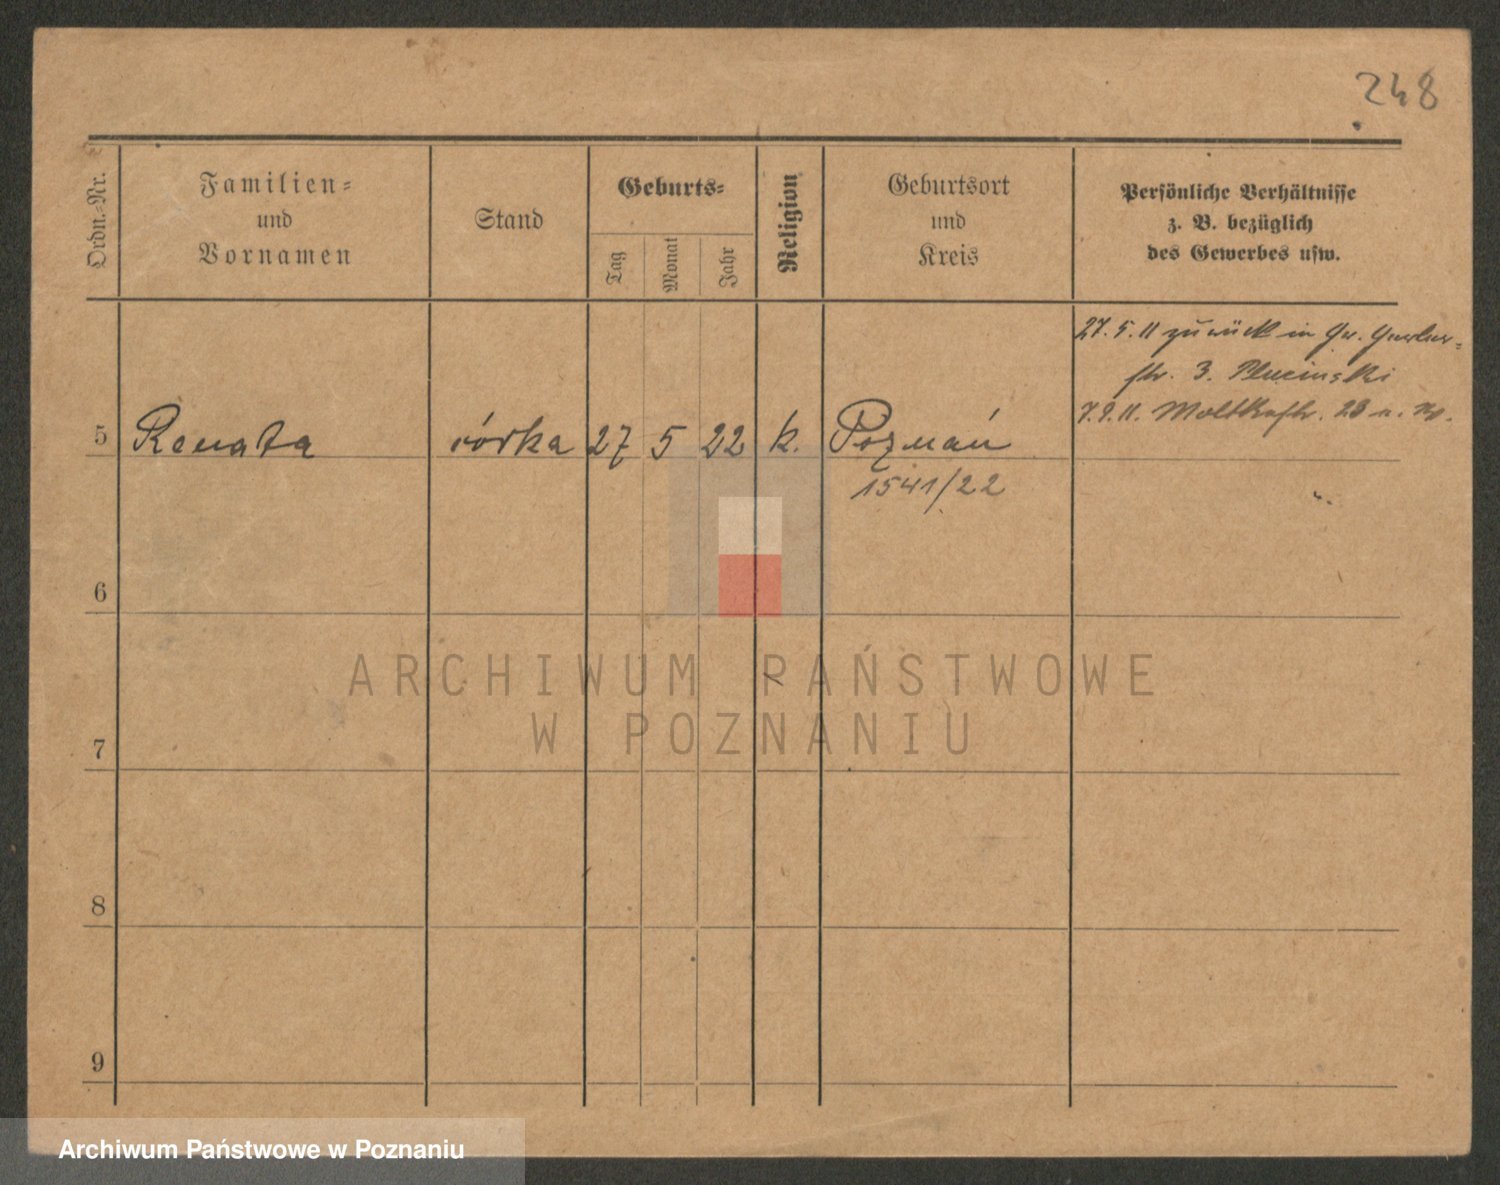 248
Ordn.-Nr.
Familien-
und
Vornamen
Stand
Geburts-
Tag
Monat
Jahr
Religion
Geburtsort
und
Kreis
Persönliche Verhältnisse
z. B. bezüglich
des Gewerbes usw.
27. 5. 11 zurück in
str. 3. Plucinski
7. 9. 11. Moltkestr. 28
5 Renata córka 27 5 22 k. Poznań
1541/22
6
7
8
9
ARCHIWUM PAŃSTWOWE
W POZNANIU
Archiwum Państwowe w Poznaniu